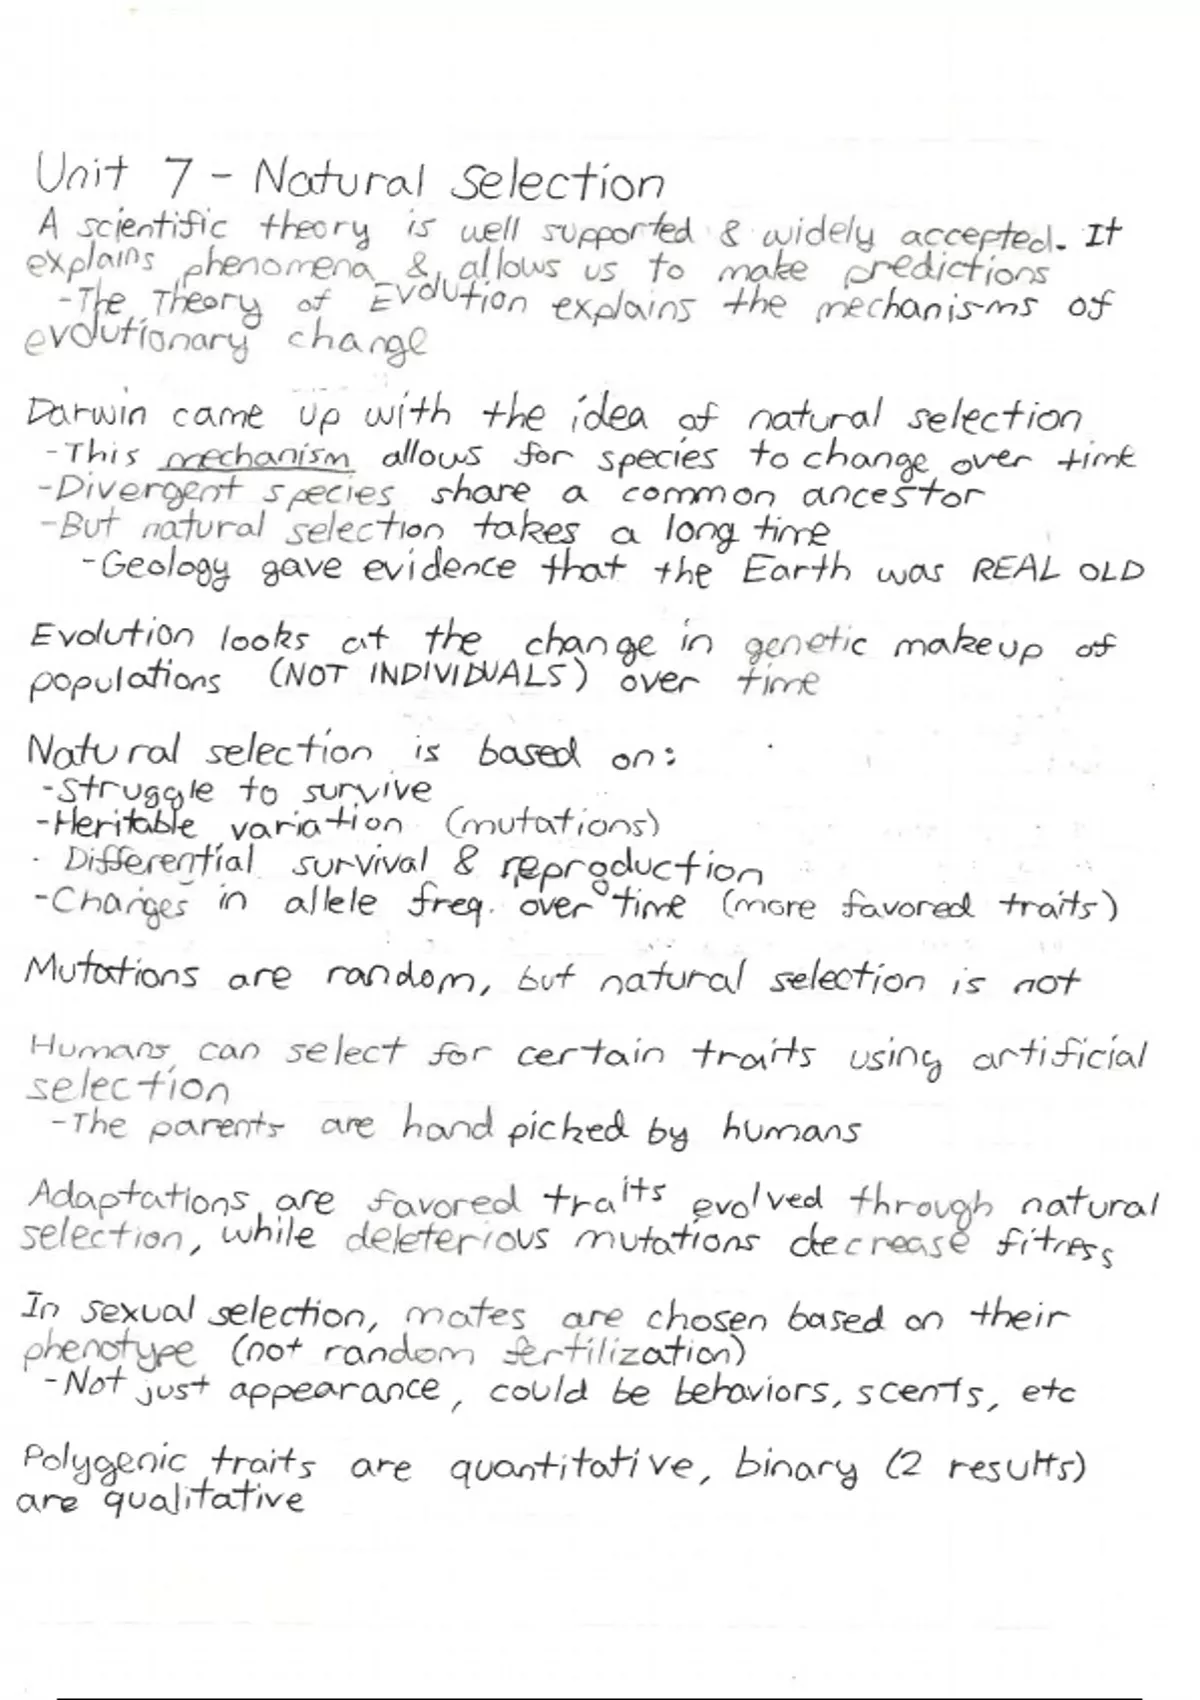 Unit 7 - Natural Selection
A scientific theory is well supported & widely accepted. It
explains phenomena & allows us to make predictions
-The Theory of Evolution explains the mechanisms of
evolutionary change
Darwin came up with the idea of natural selection
-This mechanism allows for species to change over time
-Divergent species share a common ancestor
-But natural selection takes a long time
-Geology gave evidence that the Earth was REAL OLD
Evolution looks at the change in genetic makeup of
populations (NOT INDIVIDUALS) over time
Natural selection is based on:
-Struggle to survive
-Heritable variation (mutations)
- Differential survival & reproduction
-Changes in allele freq. over time (more favored traits)
Mutations are random, but natural selection is not
Humans can select for certain traits using artificial
selection
-The parents are hand picked by humans
Adaptations are favored traits evolved through natural
selection, while deleterious mutations decrease fitness
In sexual selection, mates are chosen based on their
phenotype (not random fertilization)
-Not just appearance, could be behaviors, scents, etc
Polygenic traits are quantitative, binary (2 results)
are qualitative